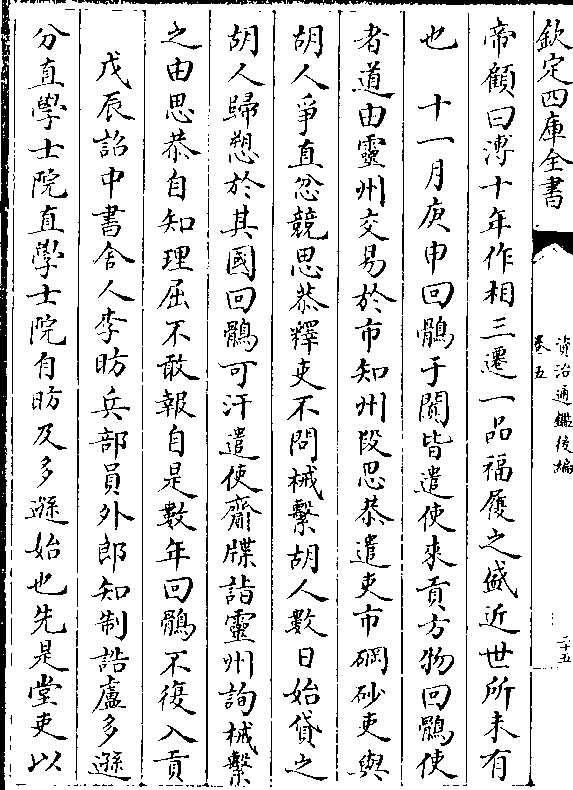 欽定四庫全書
資治通鑑後編
卷五
二十五
帝顧曰溥十年作相三遷一品福履之盛近世所未有
也　十一月庚申回鶻于闐皆遣使來貢方物回鶻使
者道由靈州交易於市知州段思恭遣吏市硇砂吏與
胡人爭直忿競思恭釋吏不問械繫胡人數日始貸之
胡人歸愬於其國回鶻可汗遣使齎牒詣靈州詢械繫
之由思恭自知理屈不敢報自是數年回鶻不復入貢
戊辰詔中書舍人李昉兵部員外郎知制誥盧多遜
分直學士院直學士院自昉及多遜始也先是堂吏以